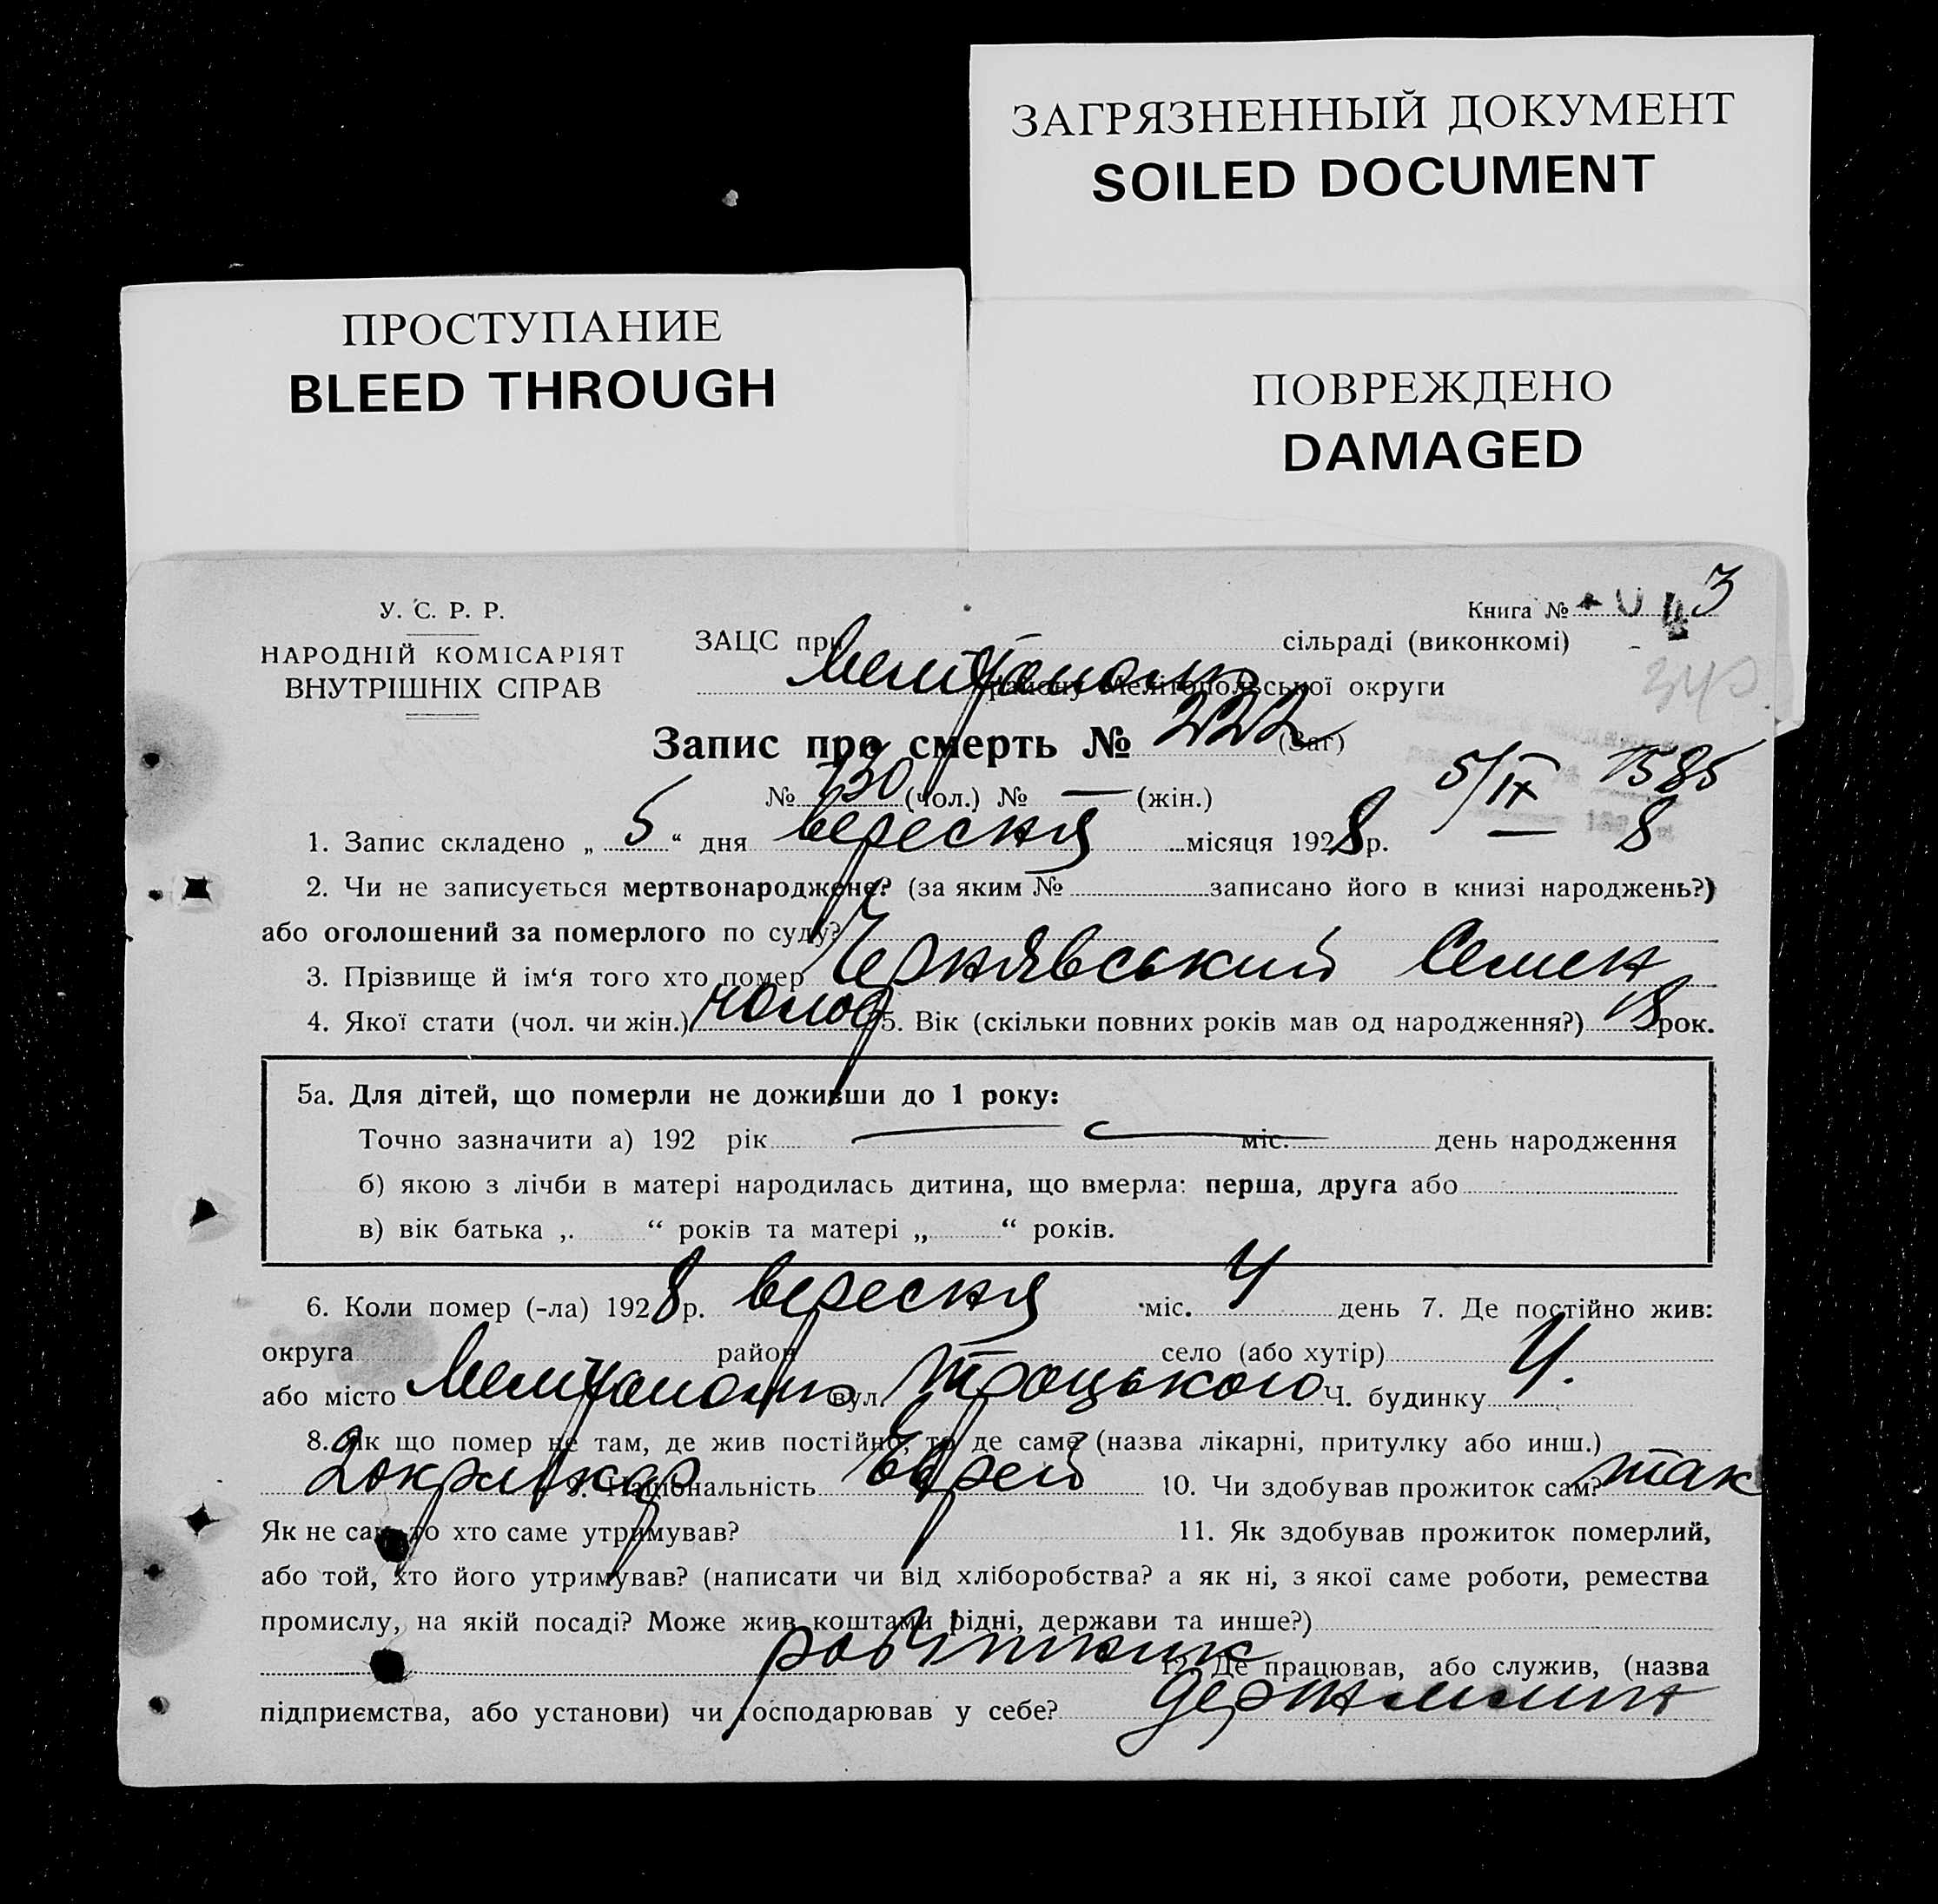 ЗАГРЯЗНЕННЫЙ ДОКУМЕНТ
SOILED DOCUMENT
ПРОСТУПАНИЕ
BLEED THROUGH
ПОВРЕЖДЕНО
DAMAGED
У. С. Р. Р.
НАРОДНІЙ КОМІСАРІЯТ
ВНУТРІШНІХ СПРАВ
Книга № 3
ЗАЦС при сільраді (виконкомі)
Мелітополь району Мелітопольської округи
Запис про смерть № 222 (Заг)
№ 130 (чол.) № — (жін.)
5/IX 1585
8
1. Запис складено „ 5 “ дня вересня місяця 1928 р.
2. Чи не записується мертвонароджене? (за яким № записано його в книзі народжень?)
або оголошений за померлого по суду?
3. Прізвище й ім‘я того хто помер Чернявський Семен
4. Якої стати (чол. чи жін.) чолов 5. Вік (скільки повних років мав од народження?) 18 рок.
5а. Для дітей, що померли не доживши до 1 року:
Точно зазначити а) 192 рік міс. день народження
б) якою з лічби в матері народилась дитина, що вмерла: перша, друга або
в) вік батька „ “ років та матері „ “ років.
6. Коли помер (-ла) 1928 р. вересня міс. 4 день 7. Де постійно жив:
округа район село (або хутір)
або місто Мелітополь вул. Троцького Ч. будинку 4.
8. Як що помер не там, де жив постійно, то де саме (назва лікарні, притулку або инш.)
Окрлікар 9. Національність Еврей 10. Чи здобував прожиток сам? так
Як не сам то хто саме утримував? 11. Як здобував прожиток померлий,
або той, хто його утримував? (написати чи від хліборобства? а як ні, з якої саме роботи, ремества
промислу, на якій посаді? Може жив коштами рідні, держави та инше?)
робітник 12. Де працював, або служив, (назва
підприємства, або установи) чи господарював у себе? держмлин